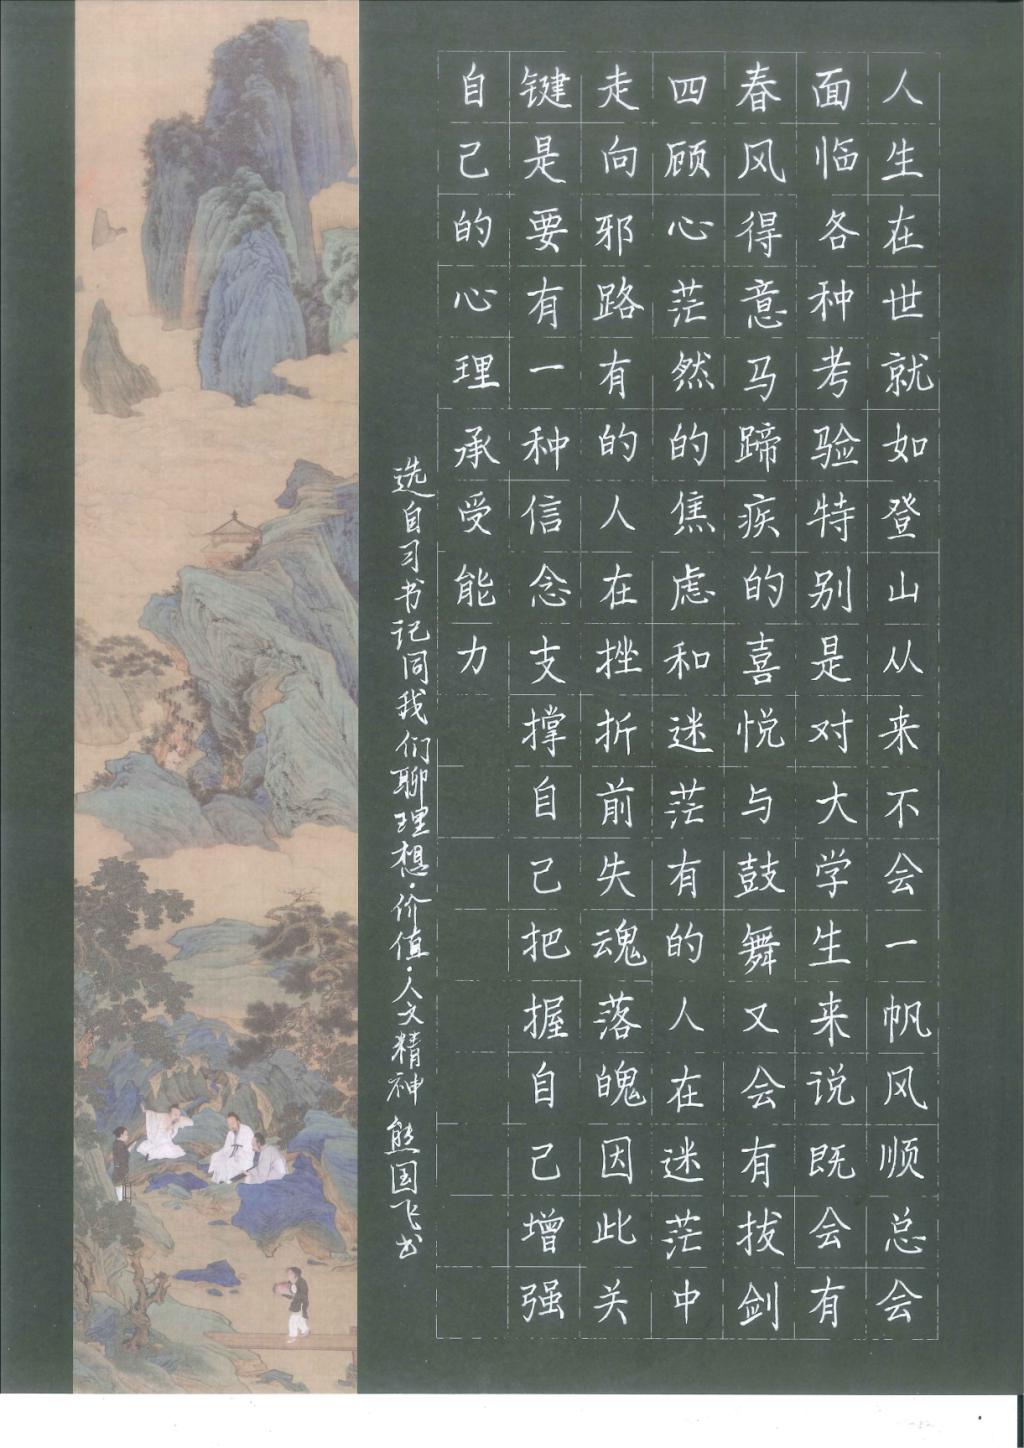 人生在世就如登山从来不会一帆风顺总会
面临各种考验特别是对大学生来说既会有
春风得意马蹄疾的喜悦与鼓舞又会有拔剑
四顾心茫然的焦虑和迷茫有的人在迷茫中
走向邪路有的人在挫折前失魂落魄因此关
键是要有一种信念支撑自己把握自己增强
自己的心理承受能力
选自习书记同我们聊理想·价值·人文精神 熊国飞书